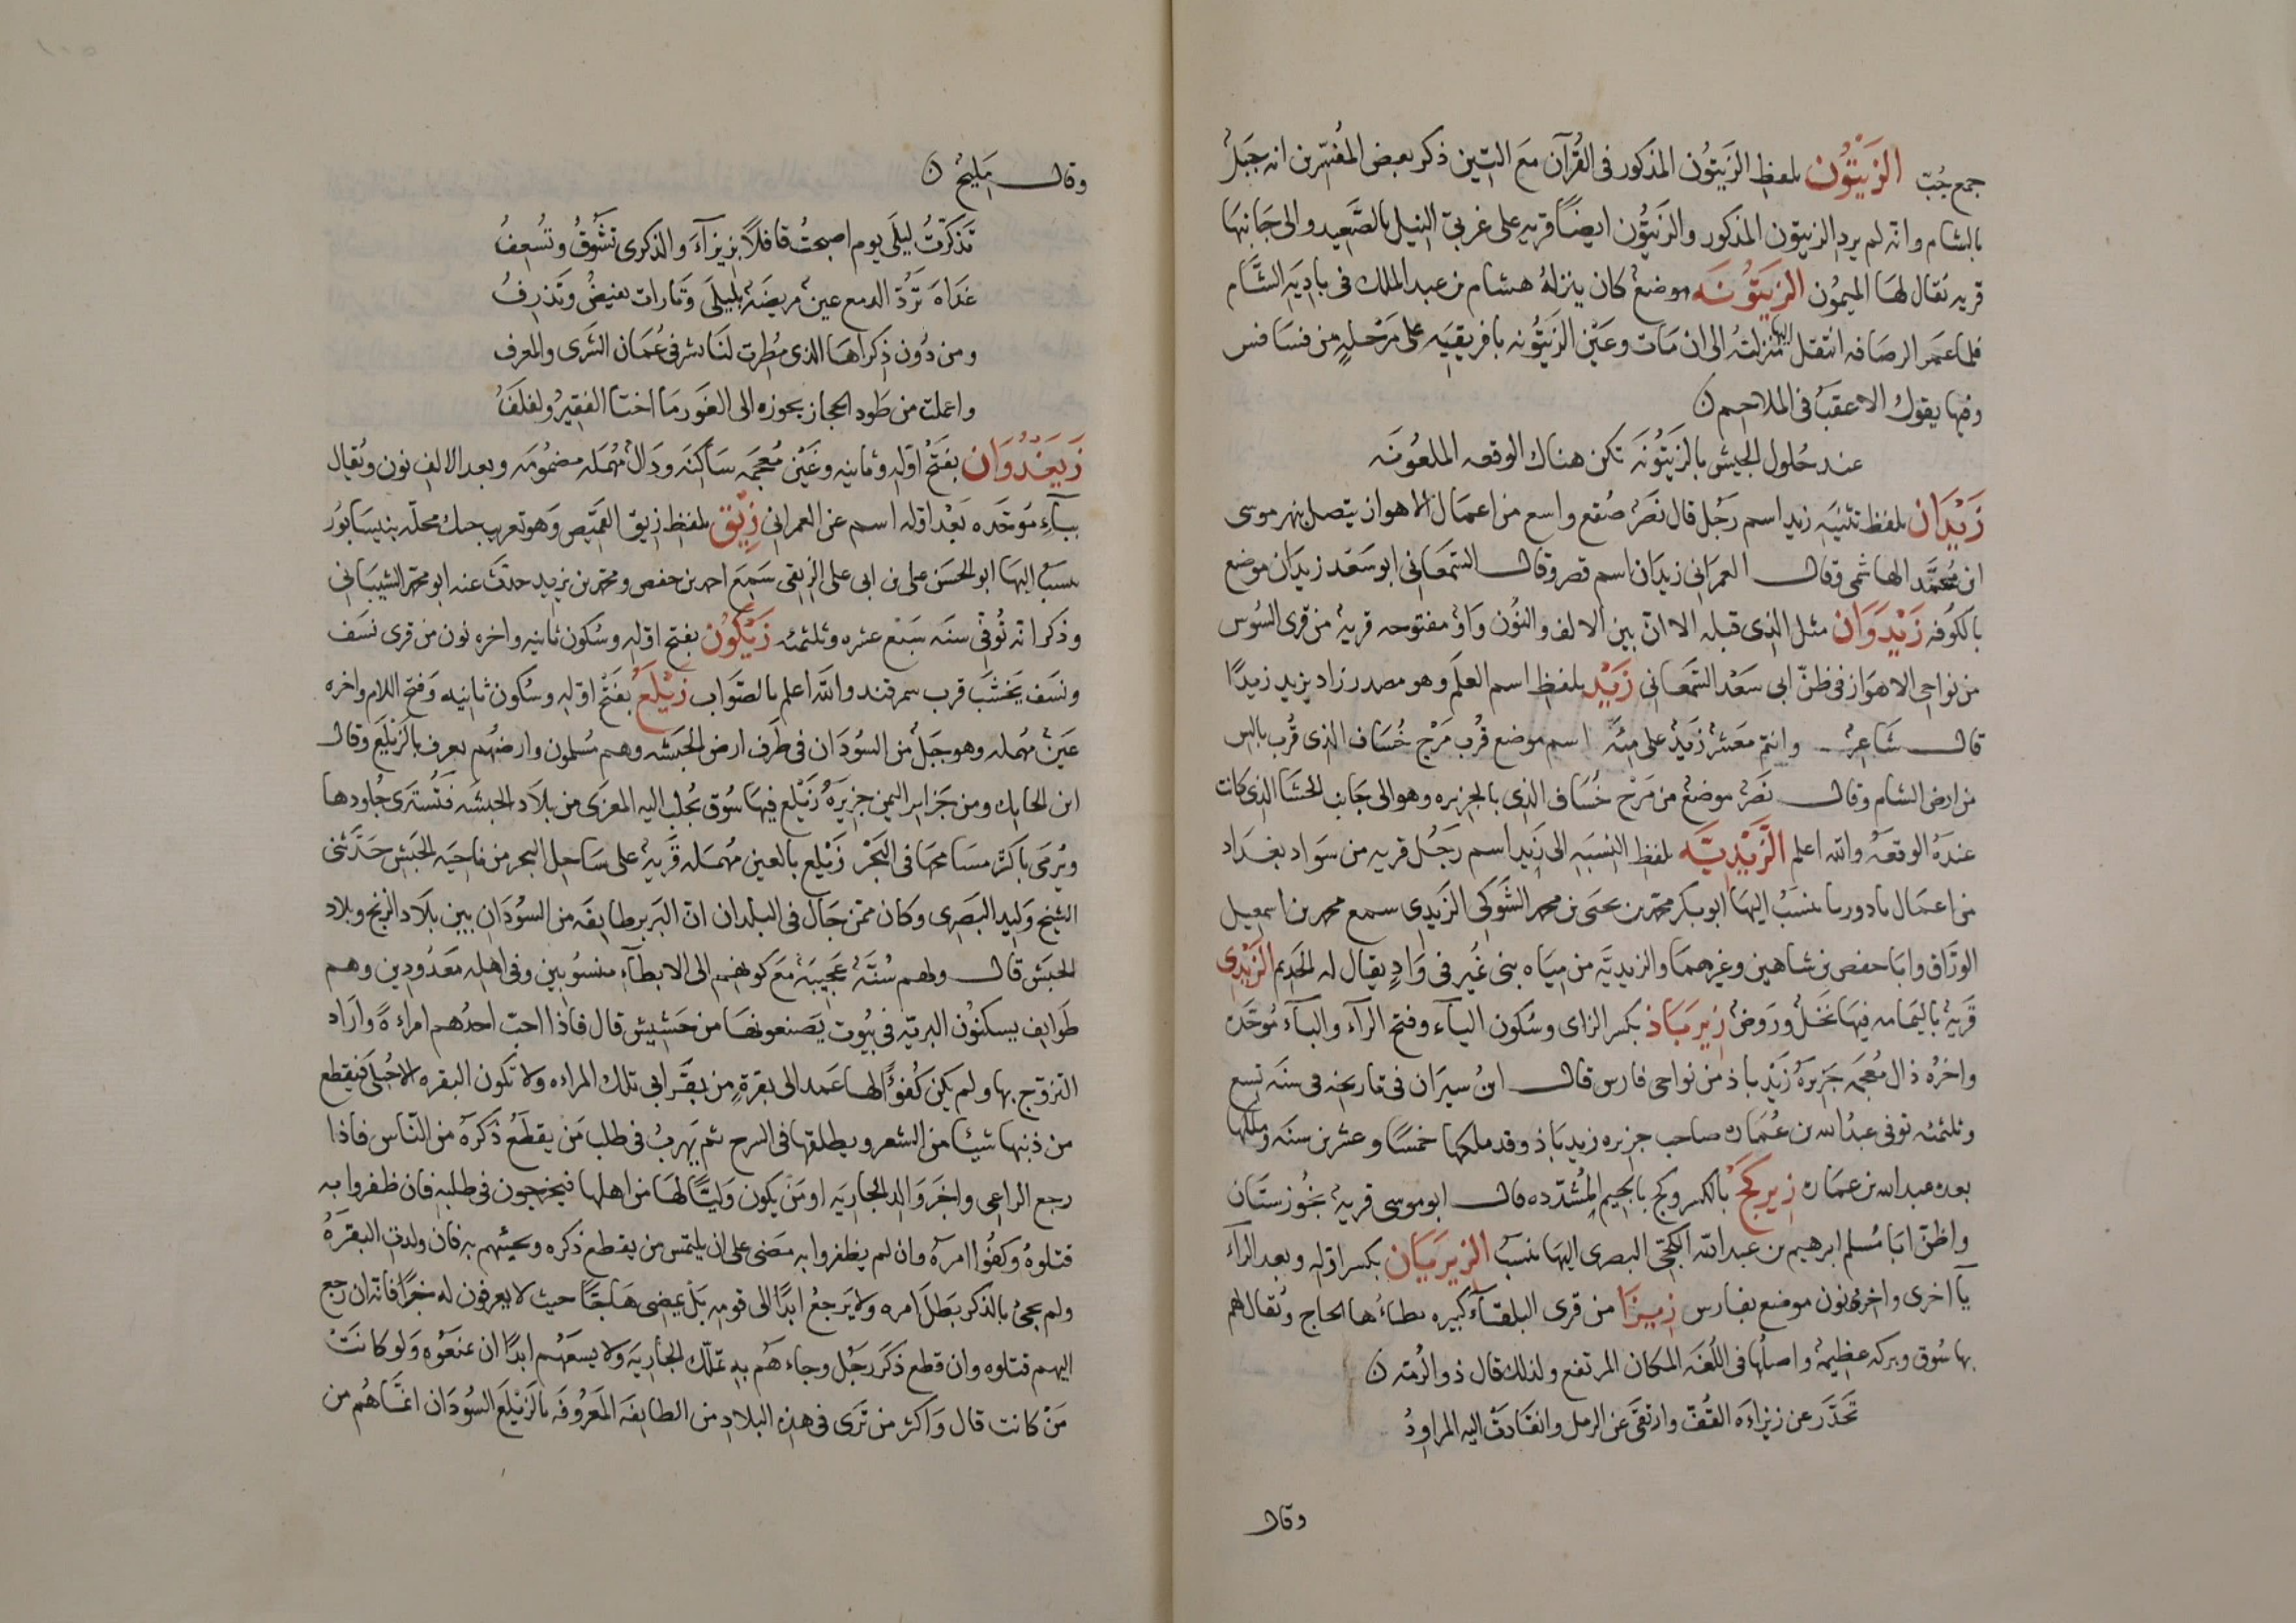 جمع جُبّ الزَيْتُون بلفظ الزَيتون المذكور فى القُرآن مَع التِين ذكر بعض المفُسّرين انه جَبَل
بالشام وانه لم يرد الزيتون المذكور والزَيتُون ايضًا قريه على غربىّ النيل بالصَّعيد والى جَانِبهَا
قريه نُقال لهَا الميمُون الزيَتوُنَه موضع كان ينزلهُ هشام بن عبد الملك فى بادِيَه الشَّام
فلما عمَر الرصَافه انتقل اليها منزلتُه الى ان مَات وعَيْن الزَيتُونه بافريقيَه على مَرْحلهٍ من فسَافس
وفيها يقوك الاعقبُ فى الملاحم ن
عند حُلول الجيش بالزَيَتُونَه تكن هناك الوقعه الملعُونَه
زَيْدَان بلفظ تثنيَه زيد اسم رَجُل قال نصَرْ صُقع واسع من اعمَال الاهواز يتصل بنهر موسى
ابن محُمَّد الهاشمى وقال العمرَانى زيدَان اسم قصر وقال السَّمعَانى ابو سَعْد زيدَان موضع
بالكوُفه زَيْدَوَان مثل الذى قبله الا انّ بين الالف والنُون وَاوْ مفتوحه قرية من قرى السُوس
من نواحى الاهوَاز فى ظنّ ابى سَعْد السَّمعَانى زَيْد بلفظ اسم العلَم وهو مصدر زاد يزيد زيدًا
قال شَاعِر وانتم مَعشر زَيد على مِئَهٍ اسم موضع قُرب مَرْج خُسَاف الذى قُرب بالس
من ارض الشام وقال نصَرْ موضع من مَرْج خُسَاف الذى بالجزيره وهو الى جَانب الحشَا الذى كانت
عندَهُ الوقعَه والله اعلم الزَّيْديَّه بلفظ النسْبَه الى زَيد اسم رَجُل قريه من سَوَاد بغدَاد
من اعمَال بادوريا ينسَبُ اليهَا ابو بكر محمّد بن يحيَى بن محمد الشَّوكى الزَيدى سمع محمد بن اسمعيل
الورّاق وابَا حفص بن شاهين وغيرهمَا والزيديَّه من ميَاه بنى نُمَير فى وَادٍ يقال له الحَديم الزَيْدِى
قَريَة باليمَامه فيهَا نَخل ورَوضْ زيربَاذ بكسر الزاى وسُكون اليآء وفتح الرآء والبآء مُوحّده
واخرُه ذال مُعجَمه جَزيرَهُ زَيْرباذ من نواحى فارس قال ابنُ سيرَان فى تاريخه فى سنَه تِسع
وثلثمئه توفى عبدُ الله بن عُمَاره صاحب جزيره زيربَاذ وقد ملكها خمسًا وعشرين سنَه وملكها
بعده عبد الله بن عمَاره زيركَجّ بالكسر وكج بالجيم المُشدّده قال ابو موسى قرية بخُوزستَان
واظنّ ابَا مُسلم ابرهيم بن عبد الله الكجّى البصرى اليهَا ينسَبُ الزيرَيَان بكسر اوّله وبعد الرآء
يآ اخرى واخرهُ نون موضع بفارس زيزَا من قرى البلقآء كبيره يطاءُها الحاج ونُقال لهم
بها سُوق وبركه عظيمهُ واصلُها فى اللغُه المكان المرتفع ولذلك قال ذو الرُمّه ن
تَحَدَّر عن زيزاءَه القُفّ وارتقَى عن الرمل وانقَادَتْ اليه المراوِدُ
وقال
وقال مَليْح ن
تَذكّرتُ ليلَى يوم اصبحتُ قافلاً بزيزآءَ والذكرى تشُوقُ وتُسعِفُ
غدَاهَ تَرُدّ الدمع عين مريضَة بليلَى وَتارات تفيضْ وتَذرِفُ
ومن دُون ذِكراهَا الذى خطُرت لنَا بشرقى عُمَان الشَرى والمعرف
واعلت من طَود الحجاز يجوزه الى الغَور مَا اختا الفقيرُ ولفلَفُ
زَيَغَنْدُوَان بفَتحْ اوّله وثانيه وغَيْن مُعجمَه سَاكنَه ودَالْ مهُمَله مضمُومَه وبعد الالف نون ونُقال
ببآءٍ موُحّده بَعْد اوّله اسم عن العمرانى زِيْق بلفظ زيق القميَّص وَهو تعريب جيك محلّه بنيسَابوُر
ينسَبُ اليهَا ابو الحسَن على بن ابى على الزيقى سَمِعَ احمد بن حفص ومحمّد بن يزيد حدّث عنه ابو محمّد الشيبَانى
وذَكر انّه تُوفىّ سنَه سَبْع عشره وثلثمئه زَيْكُوْن بفتح اوّله وسُكون ثانيه واخره نون من قرى نسَف
ونسَف نخَشَب قرب سمرقند والله اعلم بالصّوَاب زَيْلَعُ بفَتحْ اوّله وسُكون ثانيه وَفتح اللام واخره
عَينْ مهُمله وهو جَبَلْ من السوُدَان فى طَرَف ارض الحبَشه وهم مُسلمون وارضهُم يعرف بالزَيْلَع وقال
ابن الحايك ومن جَزاير اليمن جزيرَهُ زَيْلع فيهَا سُوق يُجلبُ اليه المعزَى من بلاَد الحبشَه فَتُشترَى جُلودها
ويُرمَى باكثر مسَامحها فى البَحْر زَيْلع بالعين مهُمَله قَريَة على سَاحل البحر من ناحيَه الحبَش حَدّثنى
الشيخ وَليد البَصَرى وكَان ممّن جَال فى البلدان انّ البَربر طايفَه من السوُدَان بين بلاَد الزنج وبلاد
الحبَش قال ولهم سُنّهَ عَجِيبَهْ مَعَ كونهم الى الابطآءِ منسوُبين وفى اهله مَعدُودين وهم
طَوايف يسكنوُن البريّه فى بيُوت يَصنعونهَا من حَشيش قال فاذا احبّ احدُهم امراءهً وارَاد
التزوّج بها ولم يكن كُفوًا لها عَمد الى بقرةٍ من بقَر ابى تلك المراءه ولا تكون البقره الا حُبلى فيقطع
من ذنبها شيئا من الشعر ويطلقها فى السرح ثم يَهربُ فى طلب مَن يقطَعُ ذَكَرَه من النّاس فاذا
رجع الراعى واخبَرَ وَالد الجارِيَه اومَن يكون وَليًّا لهَا من اهلها فيخرجون فى طلبهِ فان ظفروا به
قتلوهُ وكفُوا امرَهُ وان لم يظفروا به مَضى على ان يلتمَس من يقطع ذكره ويجيئهم به فان ولدت البقرَهُ
ولم يجئ بالذكر بَطلَ امره ولا يَرجعُ ابدًا الى قومه بَلْ يَمضى هَاجّا حيث لا يعرفون له خبَرًا فانّه ان رجع
اليهم قتلوه وان قطع ذَكَر رَجُل وجاءَهُم به تملّك الجارِيَه ولا يسَعَهُم ابدًا ان يمنَعُوه وَلو كانَتْ
مَنْ كانت قال وَاكثر من تَرَى فى هذه البلادِ من الطايفَه المعَرُوفَه بالزَيْلَع السوُدَان انمّا هُم من